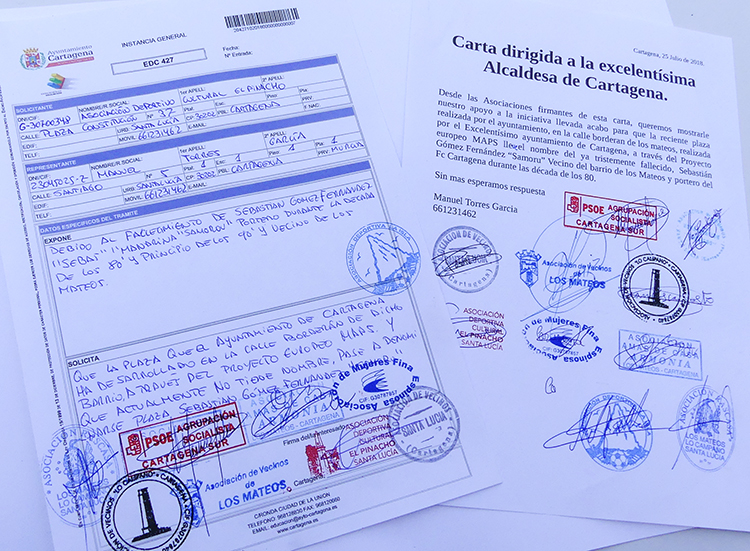 Ayuntamiento
Cartagena
INSTANCIA GENERAL
EDC 427
Fecha:
Nº Entrada:
SOLICITANTE
DNI/CIF NOMBRE/R.SOCIAL 1er APELL: 2º APELL:
ASOCIACIÓN DEPORTIVO CULTURAL EL PINACHO
CALLE PLAZA CONSTITUCIÓN Nº 32
URB SANTA LUCÍA CP 30202 P.: CARTAGENA
EDIF: MOVIL 661231462 E-MAIL
TELF:
REPRESENTANTE
DNI/CIF NOMBRE/R.SOCIAL 1er APELL: 2º APELL:
MANUEL TORRES GARCÍA
CALLE SANTIAGO Nº 5
URB SANTA LUCÍA CP: 30202 P.: CARTAGENA MURCIA
EDIF: MOVIL 661231462 E-MAIL
TELF:
DATOS ESPECIFICOS DEL TRAMITE
EXPONE
DEBIDO AL FALLECIMIENTO DE SEBASTIAN GOMEZ FERNANDEZ
"SEBAI" "MANDARINA" "SAMORU" PORTERO DURANTE LA DECADA
DE LOS 80 Y PRINCIPIO DE LOS 90 Y VECINO DE LOS
MATEOS.
SOLICITA
QUE LA PLAZA QUE EL AYUNTAMIENTO DE CARTAGENA
HA DESARROLLADO EN LA CALLE BORDERÁN DE DICHO
BARRIO, A TRAVES DEL PROYECTO EUROPEO MAPS, Y
QUE ACTUALMENTE NO TIENE NOMBRE, PASE A DENOMI
NARSE PLAZA SEBASTIAN GOMEZ FERNANDEZ
PSOE AGRUPACIÓN
SOCIALISTA
CARTAGENA SUR
Asociación de Mujeres Fina Espinosa
CIF: G30787857
Firma del Interesado
ASOCIACIÓN
DEPORTIVA
CULTURAL
EL PINACHO
SANTA LUCÍA
ASOCIACIÓN DE VECINOS
SANTA LUCIA
(Cartagena)
Asociación de Vecinos
LOS MATEOS
Cartagena
C/RONDA CIUDAD DE LA UNION
TELEFONO: 968128830 FAX: 968120660
EMAIL: education@ayto-cartagena.es
cartagena.es
Cartagena, 25 Julio de 2018.
Carta dirigida a la excelentísima
Alcaldesa de Cartagena.
Desde las Asociaciones firmantes de esta carta, queremos mostrarle
nuestro apoyo a la iniciativa llevada acabo para que la reciente plaza
realizada por el ayuntamiento, en la calle borderan de los mateos, realizada
por el Excelentísimo ayuntamiento de Cartagena, a través del Proyecto
europeo MAPS lleve el nombre del ya tristemente fallecido, Sebastián
Gómez Fernández "Samoru" Vecino del barrio de los Mateos y portero del
Fc Cartagena durante las década de los 80.
Sin mas esperamos respuesta
Manuel Torres Garcia
661231462
PSOE AGRUPACIÓN
SOCIALISTA
CARTAGENA SUR
ASOCIACIÓN DE VECINOS
(Cartagena)
Asociación de Vecinos
LOS MATEOS
ASOCIACIÓN DE VECINOS "LO CAMPANO"
ASOCIACIÓN
DEPORTIVA
CULTURAL
EL PINACHO
SANTA LUCÍA
Asociación de Mujeres Fina Espinosa
ASOCIACIÓN
LOS MATEOS
LO CAMPANO
SANTA LUCÍA